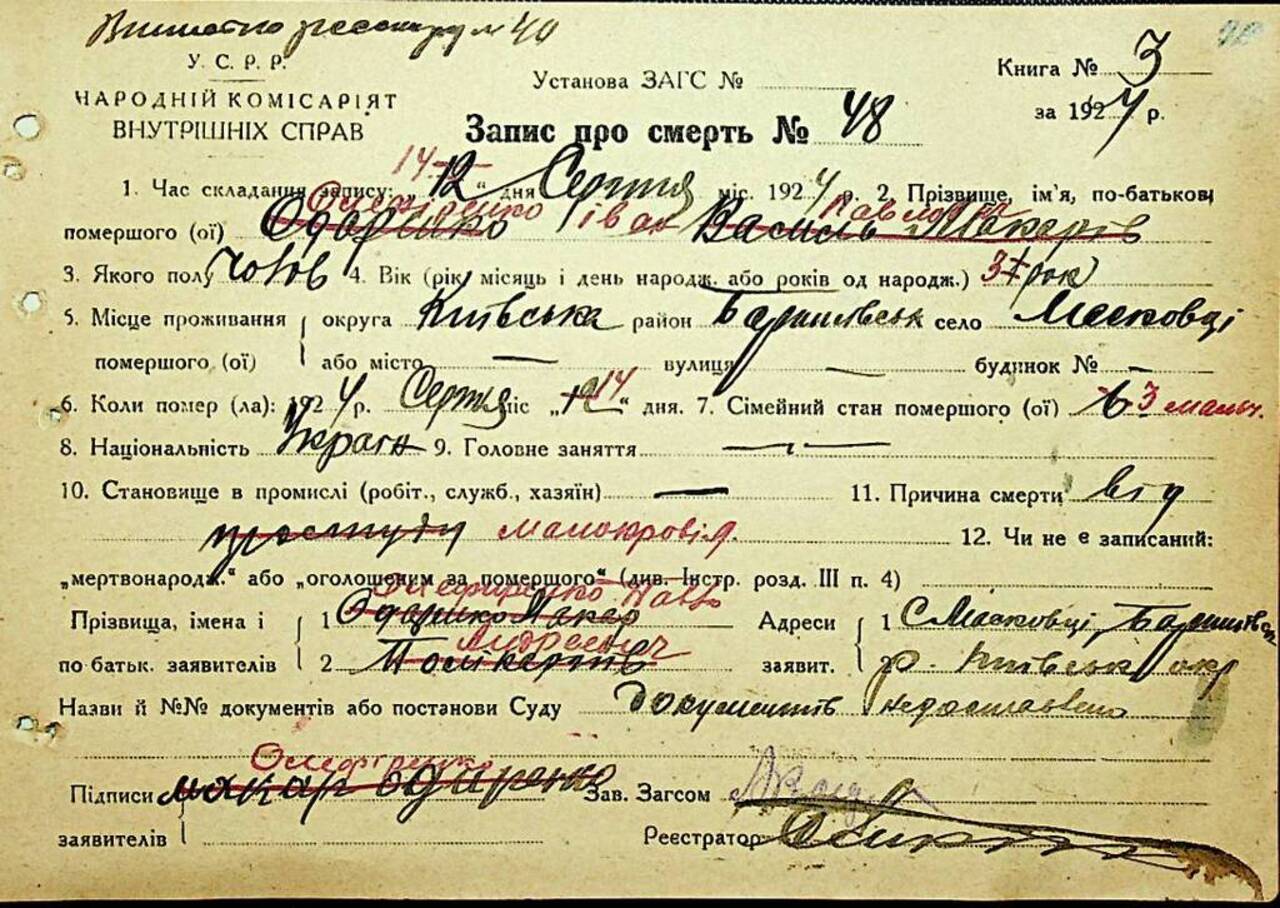 № 40
У. С. Р. Р.
НАРОДНІЙ КОМІСАРІЯТ
ВНУТРІШНІХ СПРАВ
Установа ЗАГС №
Книга № 3
за 1924 р.
Запис про смерть № 48
14
1. Час складання запису: „12“ дня Серпня міс. 1924 р. 2. Прізвище, ім'я, по-батькові
Іван Павлович
помершого (ої) Одаренко Василь Макарів
3. Якого полу чолов 4. Вік (рік, місяць і день народж. або років од народж.) 3 рок
5. Місце проживання округа Київська район Баришівськ село Масковці
помершого (ої) або місто — вулиця — будинок № —
6. Коли помер (ла): 1924 р. Серпня міс „12“ 14 дня. 7. Сімейний стан помершого (ої) 3 мальч.
8. Національність Украін 9. Головне заняття —
10. Становище в промислі (робіт., служб., хазяїн) — 11. Причина смерти від
простуди малокровія. 12. Чи не є записаний:
„мертвонародж.“ або „оголошеним за помершого“ (див. Інстр. розд. III п. 4)
Прізвища, імена і 1 Одаренко Макар Адреси 1 С Масковці, Баришівськ
Андреевич
по батьк. заявителів 2 заявит. 2 р. Київськ окр
Назви й №№ документів або постанови Суду документів недоставлено
Підписи макар одаренко Зав. Загсом
заявителів
Реєстратор